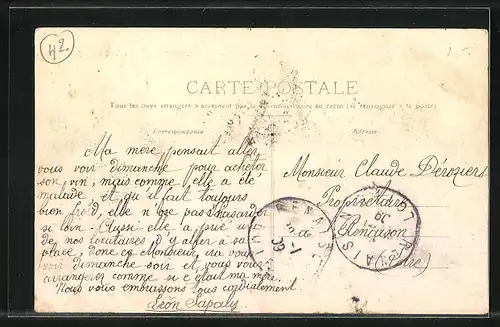 42
CARTE POSTALE
Tous les pays étrangers n'acceptent pas la correspondance au recto (se renseigner à la poste)
Correspondance
Adresse
Ma mère pensait aller
vous voir dimanche pour acheter
son vin, mais comme elle a été
malade et qu'il fait toujours
bien froid, elle n'ose pas s'hasarder
si loin. Aussi elle a prié un
de nos locataires d'y aller à sa
place, donc ce Monsieur, ira vous
voir dimanche soir et vous vous
arrangerez comme si c'était ma mère.
Nous vous embrassons tous cordialement
Léon Sapaly
Monsieur Claude Dérozier
Propriétaire
à Renaison
Loire
RENAISON
LOIRE